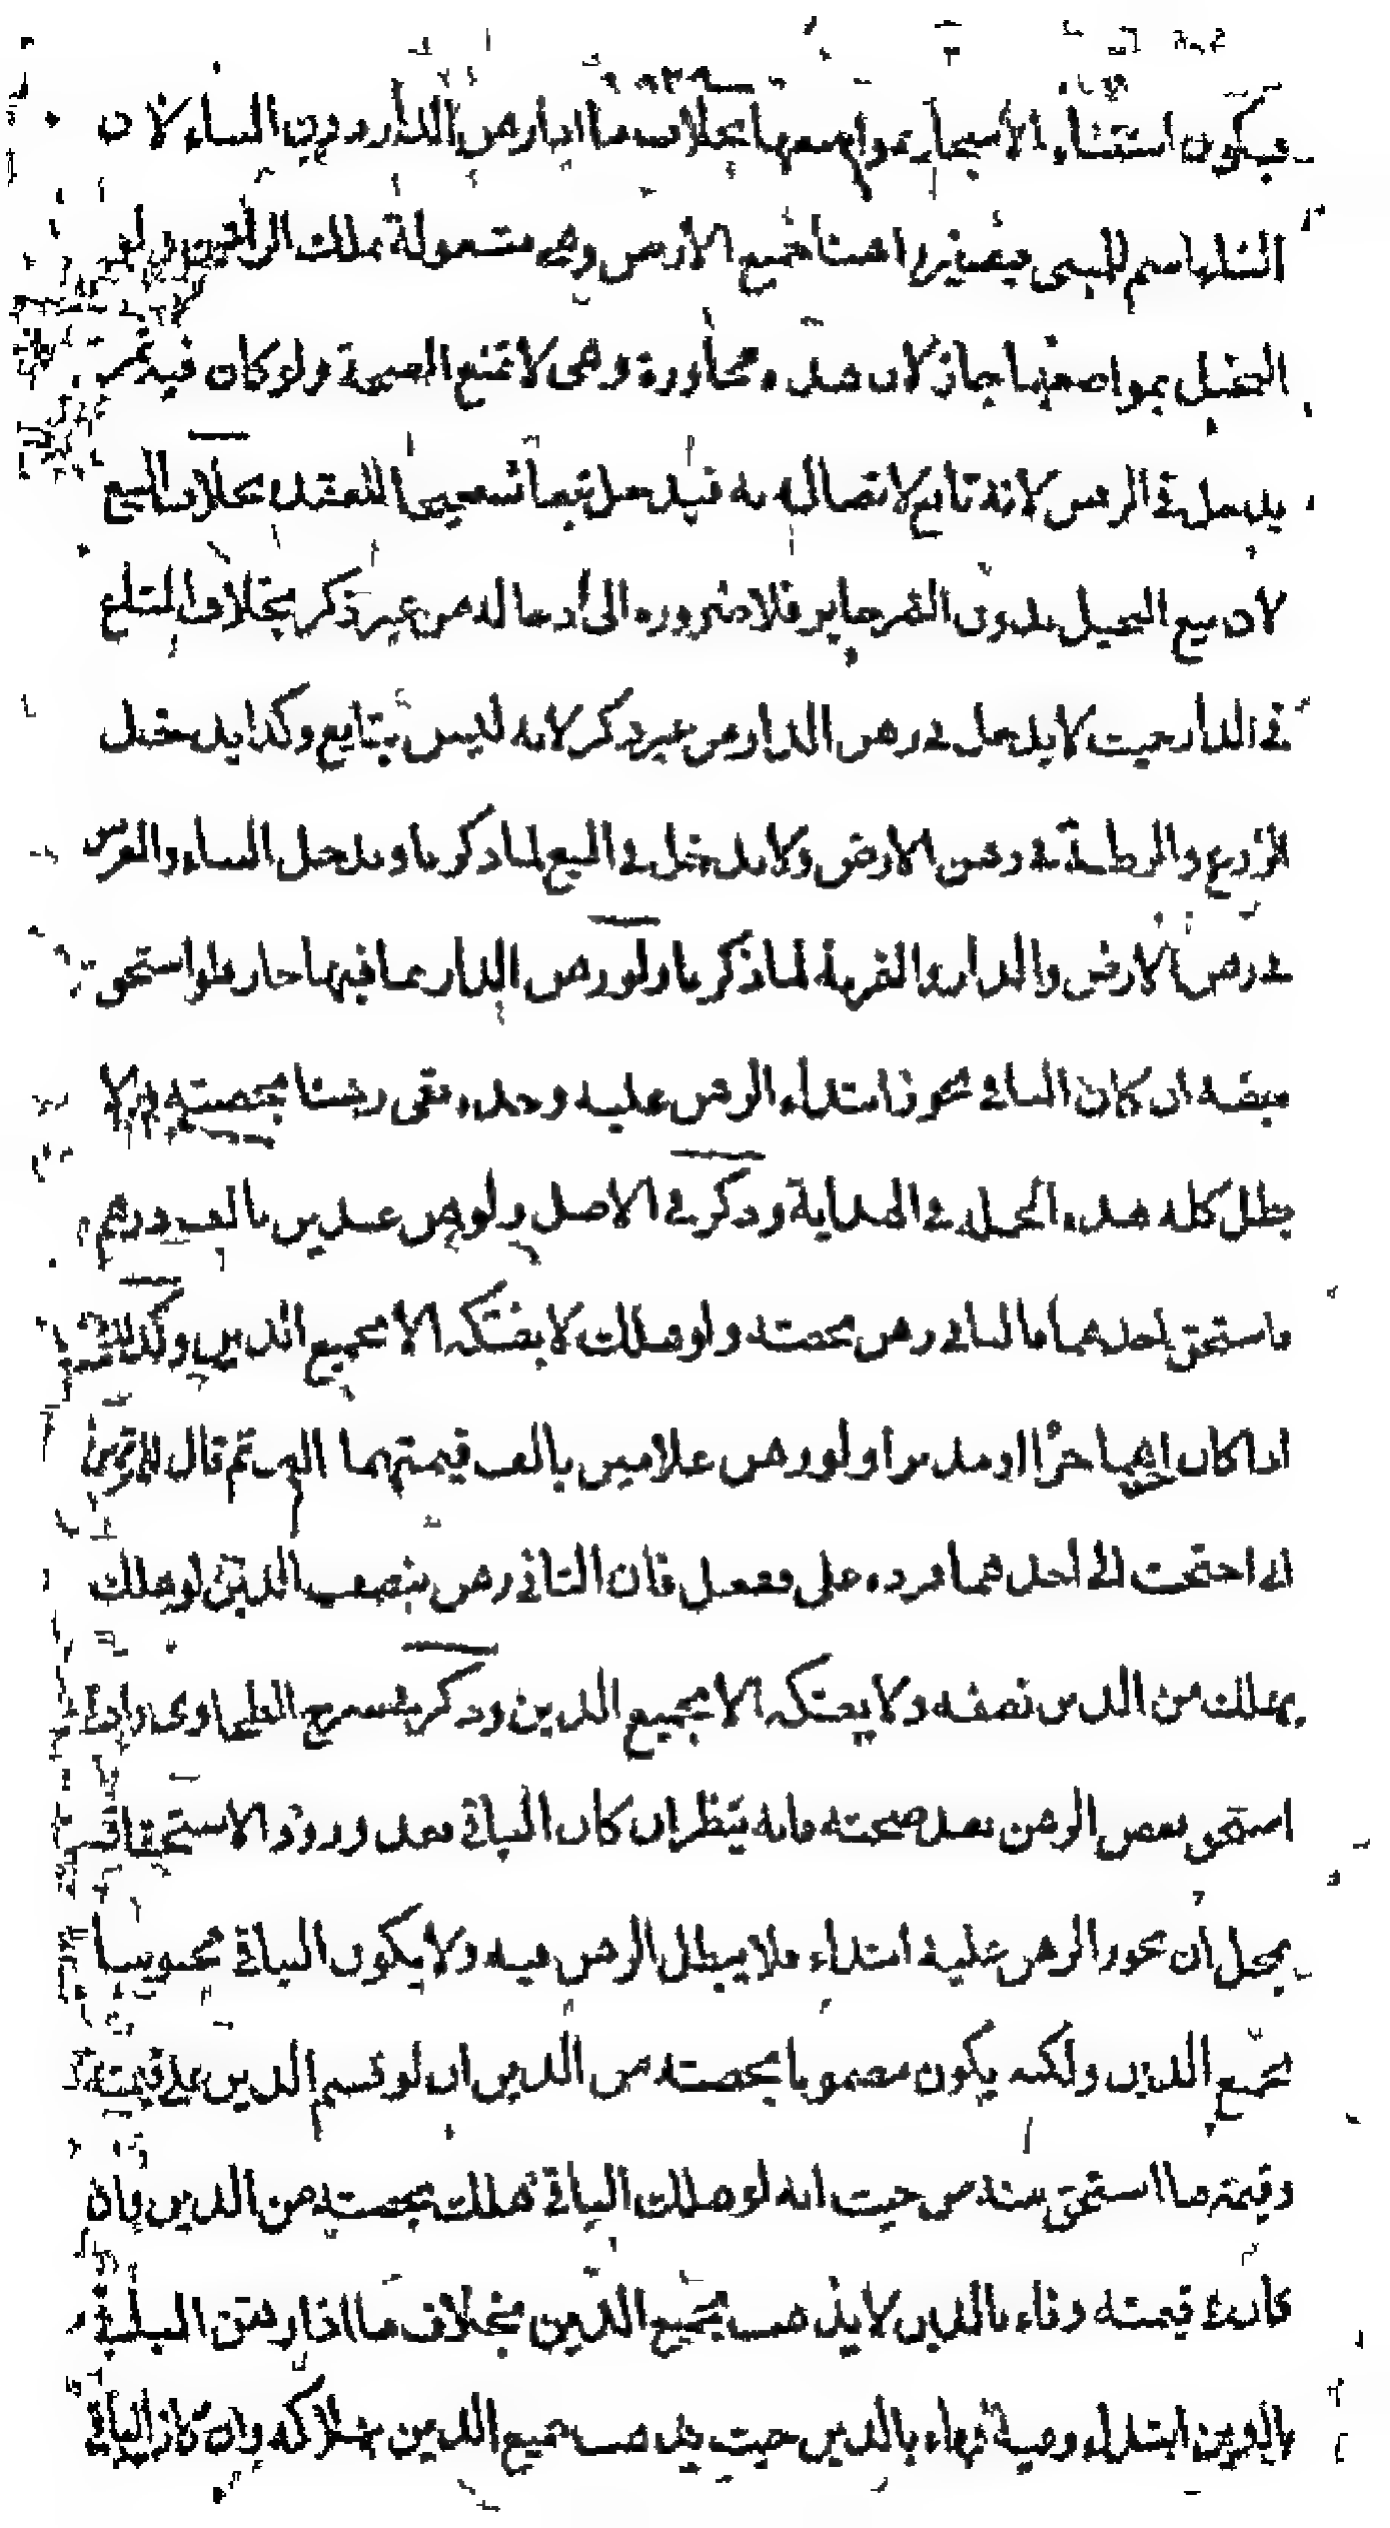 فيكون استثناء الاشجار بمواضعها بخلاف ما اذا رهن الدار دون البناء لان
البناء اسم للمبنى فيصير راهنا جميع الارض وهي مشغولة بملك الراهن ولو
النخيل بمواضعها جاز لان هذه مجاورة وهى لا تمنع الصحة ولو كان فيه ثمر
يدخل في الرهن لانه تابع لاتصاله به فيدخل تبعا تصحيحا للعقد بخلاف البيع
لان بيع النخيل بدون الثمر جايز فلا ضروره الى ادخاله من غير ذكر بخلاف المتاع
في الدار حيث لا يدخل في رهن الدار من غير ذكر لانه ليس بتابع وكذا يدخل
الزرع والرطبة في رهن الارض ولا يدخل في البيع لما ذكرنا ويدخل البناء والغرس
في رهن الارض والدار والقرية لما ذكرنا ولو رهن الدار بما فيها جاز ولو استحق
بعضه ان كان الباقي يجوز ابتداء الرهن عليه وحده بقى رهنا بحصته والا
بطل كله هذه الجملة في الهداية وذكر في الاصل ولو رهن عبدين بالف درهم
فاستحق احدهما فالباقي رهن بحصته ولو هلك لا يفتكه الا بجميع الدين وكذلك
اذا كان احدهما حرا او مدبرا ولو رهن غلامين بالف قيمتهما الف ثم قال للمرتهن
اني احتجت الى احدهما فرده على ففعل فان الثاني رهن بنصف الدين لو هلك
يهلك من الدين نصفه ولا يفتكه الا بجميع الدين وذكر في شرح الطحاوى واذا
استحق بعض الرهن بعد صحته فانه ينظر ان كان الباقي بعد ورود الاستحقاق
يحمل ان يجوز الرهن عليه ابتداء فلا يبطل الرهن فيه ولا يكون الباقي محبوسا
بجميع الدين ولكنه يكون مضمونا بحصته من الدين ان لو قسم الدين على قيمته
وقيمة ما استحق منه من حيث انه لو هلك الباقي هلك بحصته من الدين وان
كانت قيمته وفاء بالدين لا يذهب بجميع الدين بخلاف ما اذا رهن الباقي
بالدين ابتداء وفيه وفاء بالدين حيث يذهب بجميع الدين بهلاكه وان كان الباقي